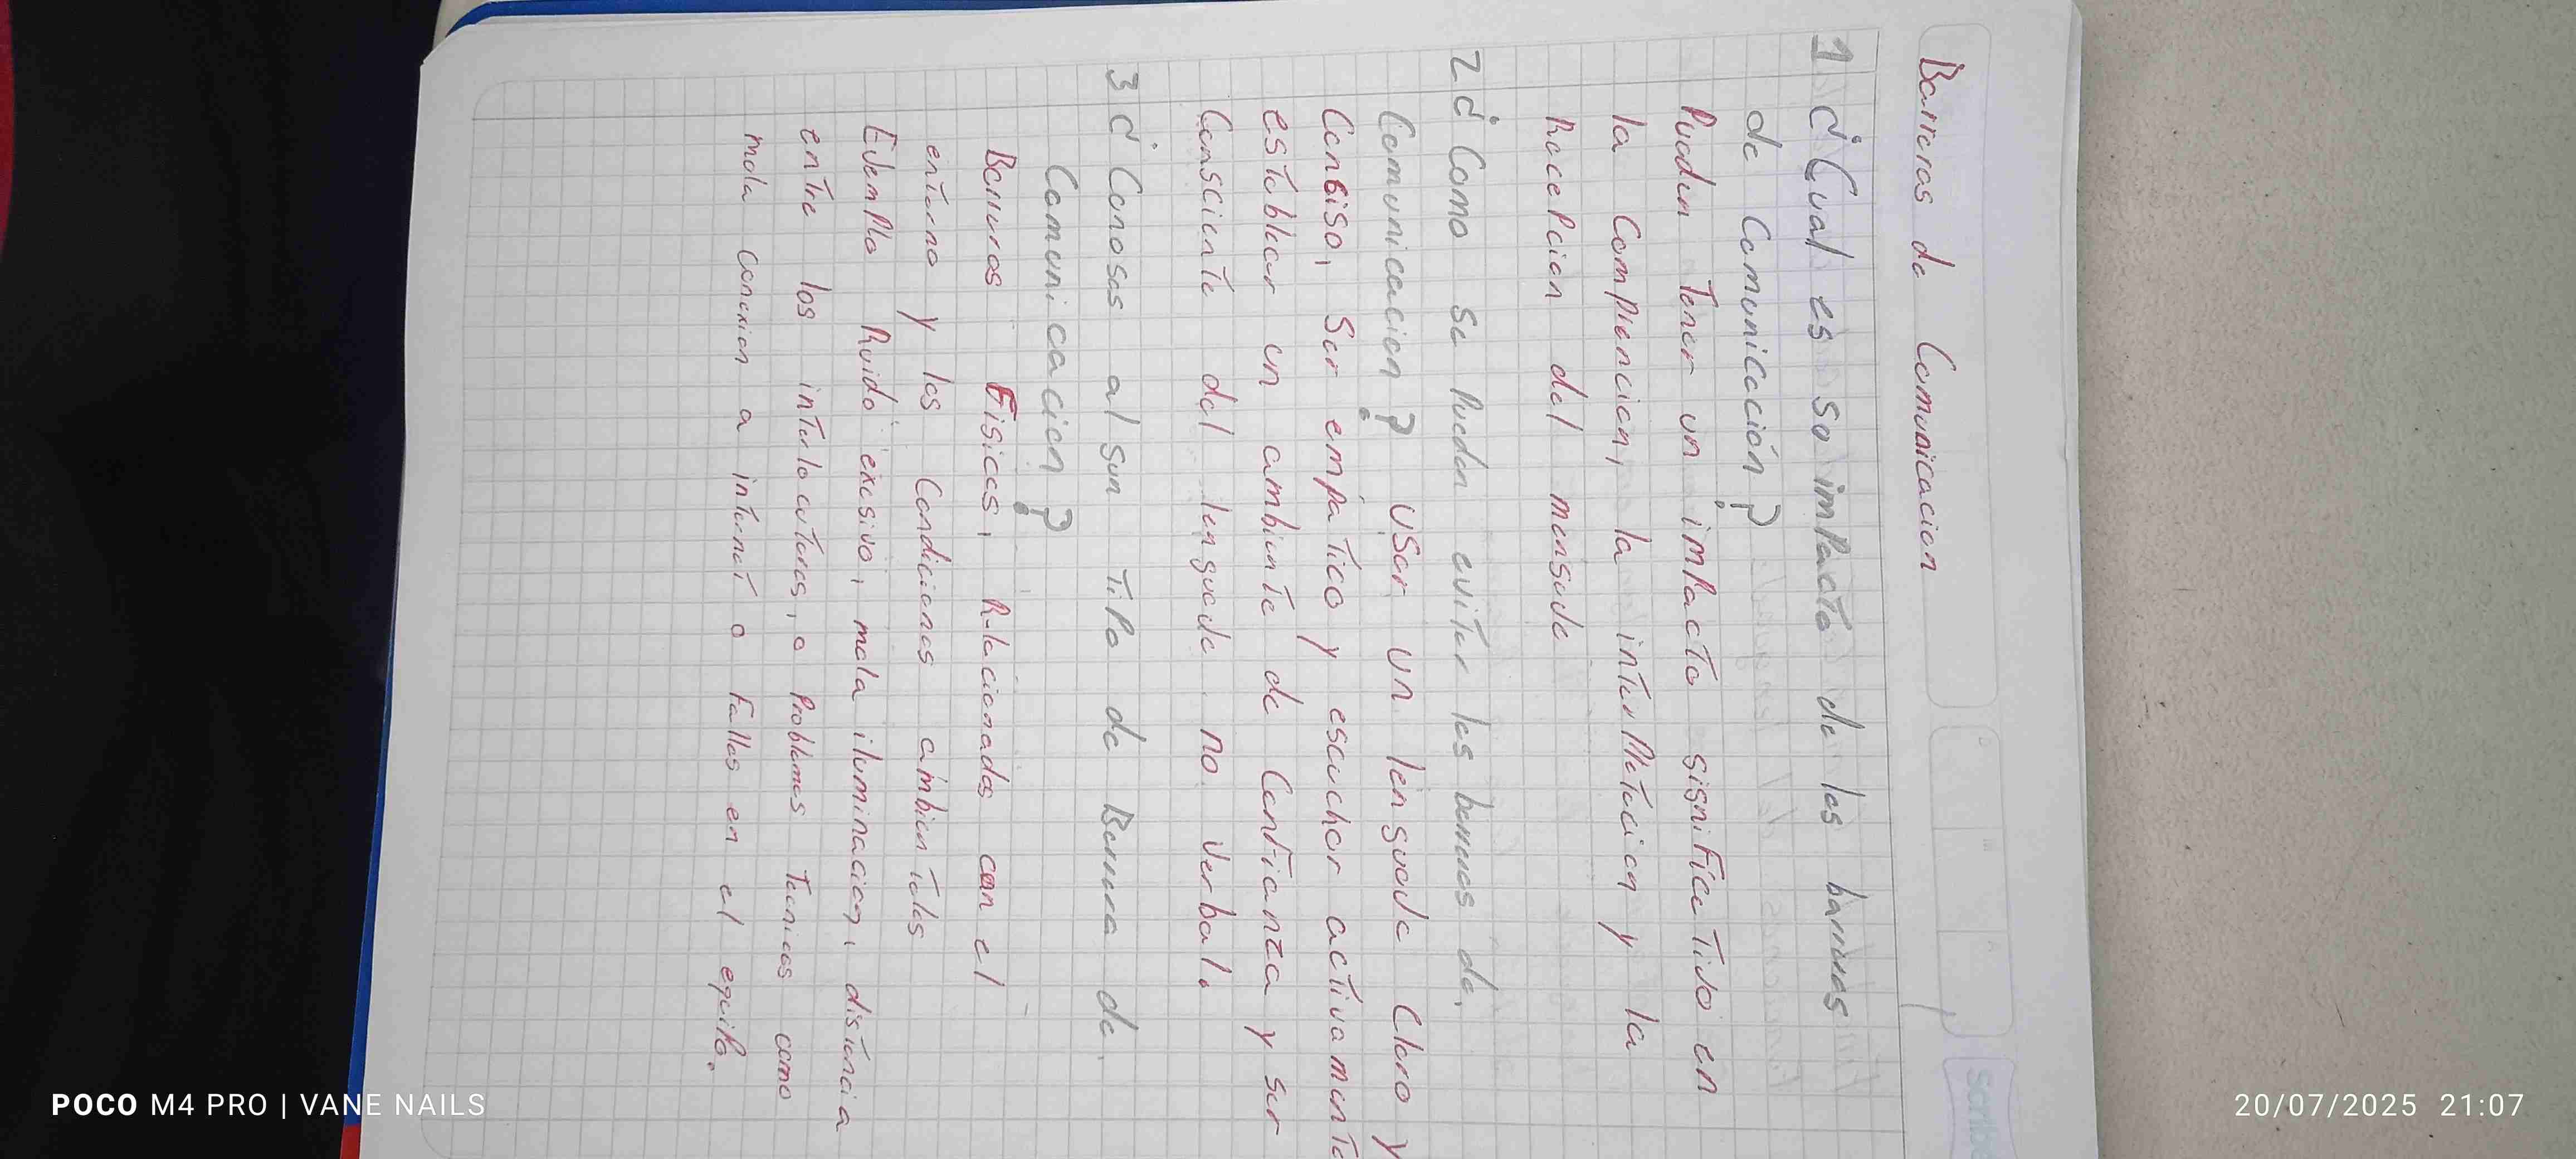 Barreras de Comunicacion
1 ¿Cual es so impacto de las barreras
de Comunicación?
Pueden Tener un impacto significativo en
la Comprencion, la interpretacion y la
Recepcion del mensaje
2 ¿Como se Pueden evitar las barreras de.
Comunicacion? Usar un lenguaje Claro y
Consiso, Ser empatico y escuchar activamente
establecer un ambiente de Confianza y ser
Consciente del lenguaje no. Verbal.
3 ¿Conoses algun Tipo de Barrera de.
Comunicacion?
Barreras Fisicas, Relacionadas con el
entorno y las Condiciones ambientales
Ejemplo Ruido excsivo, mala iluminacion, distancia
entre los interlocutores, o Problemas Tecnicos como
mala conexion a internet o Fallas en el equipo.
Scribe
POCO M4 PRO | VANE NAILS
20/07/2025 21:07